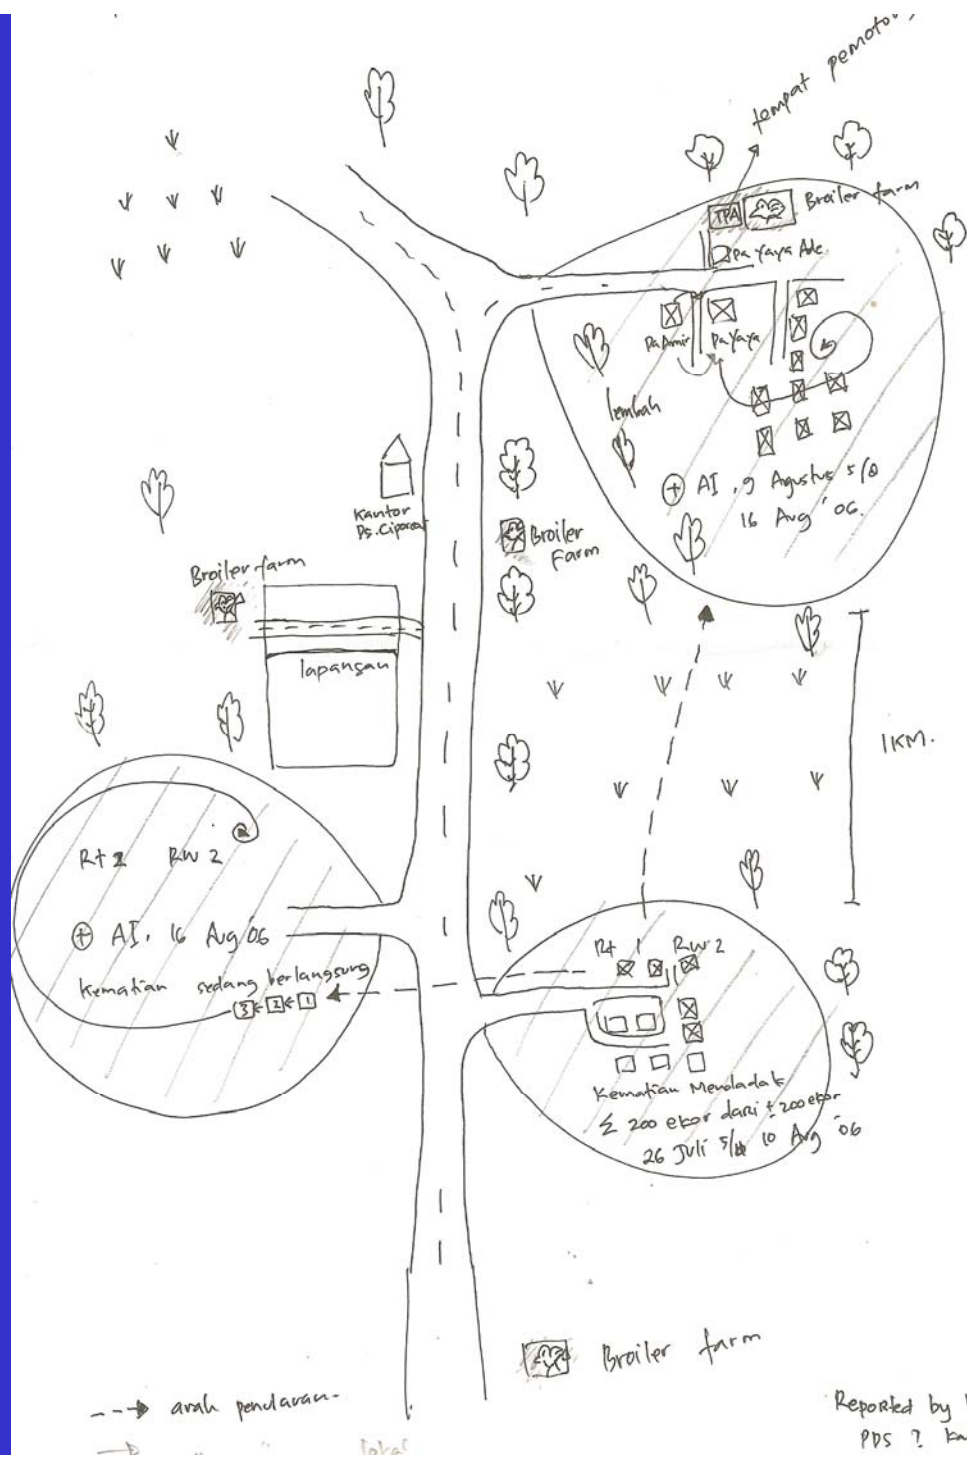 tempat
TPA
Broiler farm
pa Yaya Ade
pa Amir
pa Yaya
lembah
+ AI, 9 Agustus s/d
16 Aug '06.
Kantor
Broiler
Farm
Broiler farm
lapangan
1KM.
RW 2
+ AI, 16 Aug 06
Kematian sedang berlangsung
3 ← 2 ← 1
Rt 1 RW 2
Kematian Mendadak
Σ 200 ekor dari ± 200 ekor
26 Juli s/d 10 Aug '06
Broiler farm
arah penularan
lokal
Reported by
PDS ?